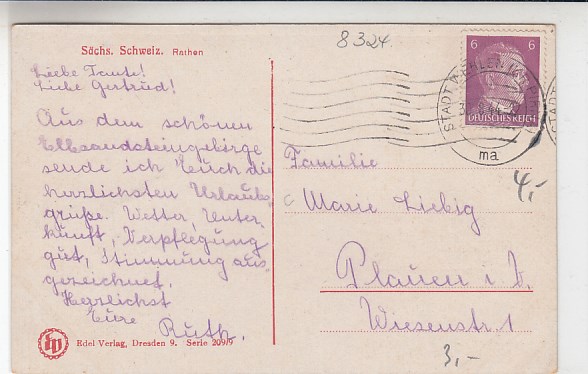 8324
Sächs. Schweiz. Rathen
Liebe Tante!
Liebe Gertrud!
Aus dem schönen
Elbsandsteingebirge
sende ich Euch die
herzlichsten Urlaubs-
grüße. Wetter, Unter-
kunft, Verpflegung
gut, Stimmung aus-
gezeichnet.
Herzlichst
Eure
Ruth.
Edel Verlag, Dresden 9. Serie 209/9
6 6
DEUTSCHES REICH
STADT WEHLEN
ma
STADT
Familie
Marie Liebig
Plauen i. V.
Wiesenstr. 1
4,-
3,-